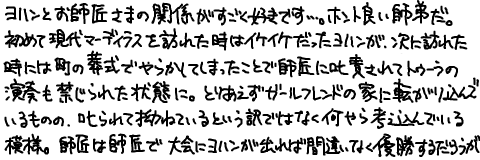 ヨハンとお師匠さまの関係がすごく好きです…。ホント良い師弟だ。
初めて現代マーディラスを訪れた時はイケイケだったヨハンが、次に訪れた
時には町の葬式でやらかしてしまったことで師匠に叱責されてトゥーラの
演奏も禁じられた状態に。とりあえずガールフレンドの家に転がり込んで
いるものの、叱られて拗ねているという訳ではなく何やら考え込んでいる
模様。師匠は師匠で大会にヨハンが出れば間違いなく優勝するだろうが